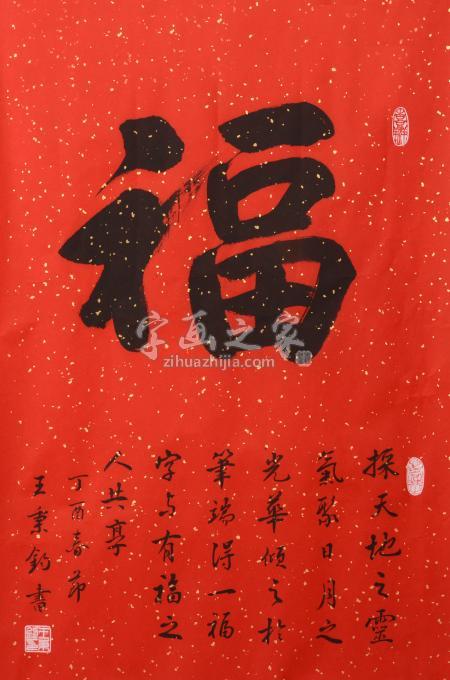 福
字画之家
zihuazhijia.com
採天地之靈
氣聚日月之
光華傾之於
筆端得一福
字与有福之
人共享
丁酉春節
王秉鈞書